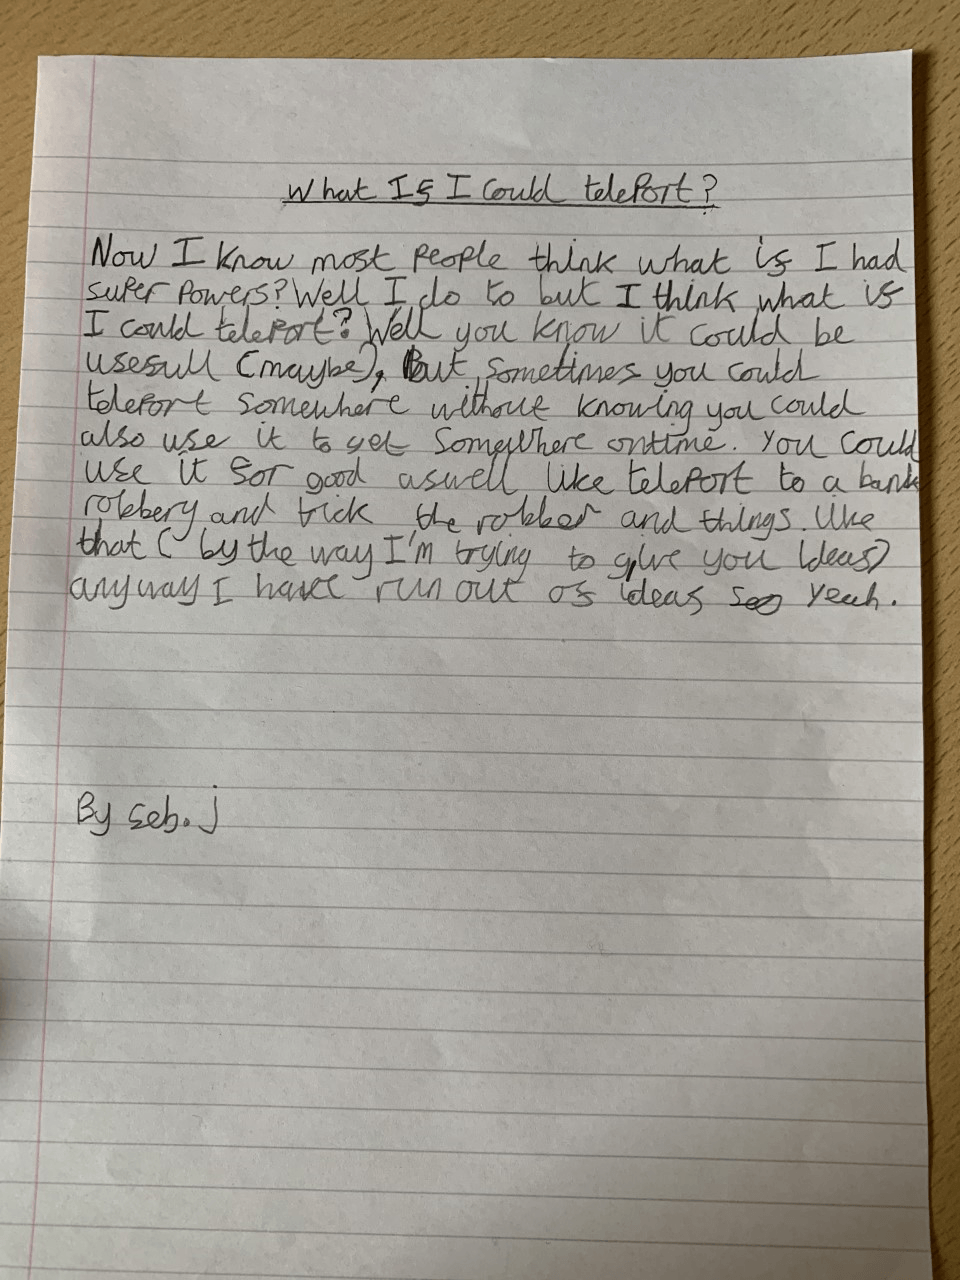 What If I Could teleport?
Now I know most people think what if I had
super powers? Well I do to but I think what if
I could teleport? Well you know it could be
usefull (maybe), But sometimes you could
teleport somewhere without knowing you could
also use it to get somewhere ontime. You could
use it for good aswell like teleport to a bank
robbery and trick the robber and things like
that ( by the way I'm trying to give you ideas)
anyway I have run out of ideas so yeah.
By seb. j